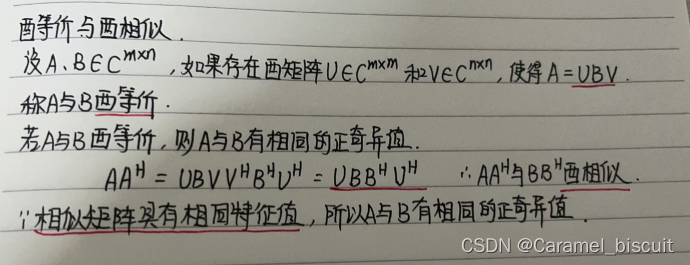 酉等价与酉相似.
设A、B∈C^{m×n},如果存在酉矩阵U∈C^{m×m}和V∈C^{n×n},使得A=UBV.
称A与B酉等价.
若A与B酉等价,则A与B有相同的正奇异值.
AA^H = UBVV^HB^HU^H = UBB^HU^H ∴AA^H与BB^H酉相似.
∵相似矩阵具有相同特征值,所以A与B有相同的正奇异值.
CSDN @Caramel_biscuit